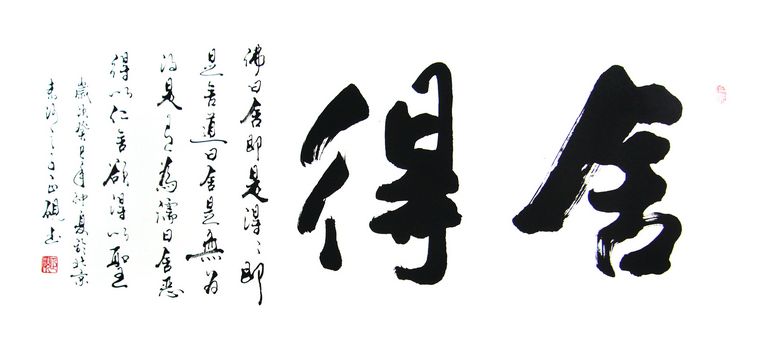 舍得
佛曰舍即是得々即
是舍道曰舍是無为
得是有為儒曰舍恶
得以仁舍欲得以聖
歲次癸巳年仲夏於北京